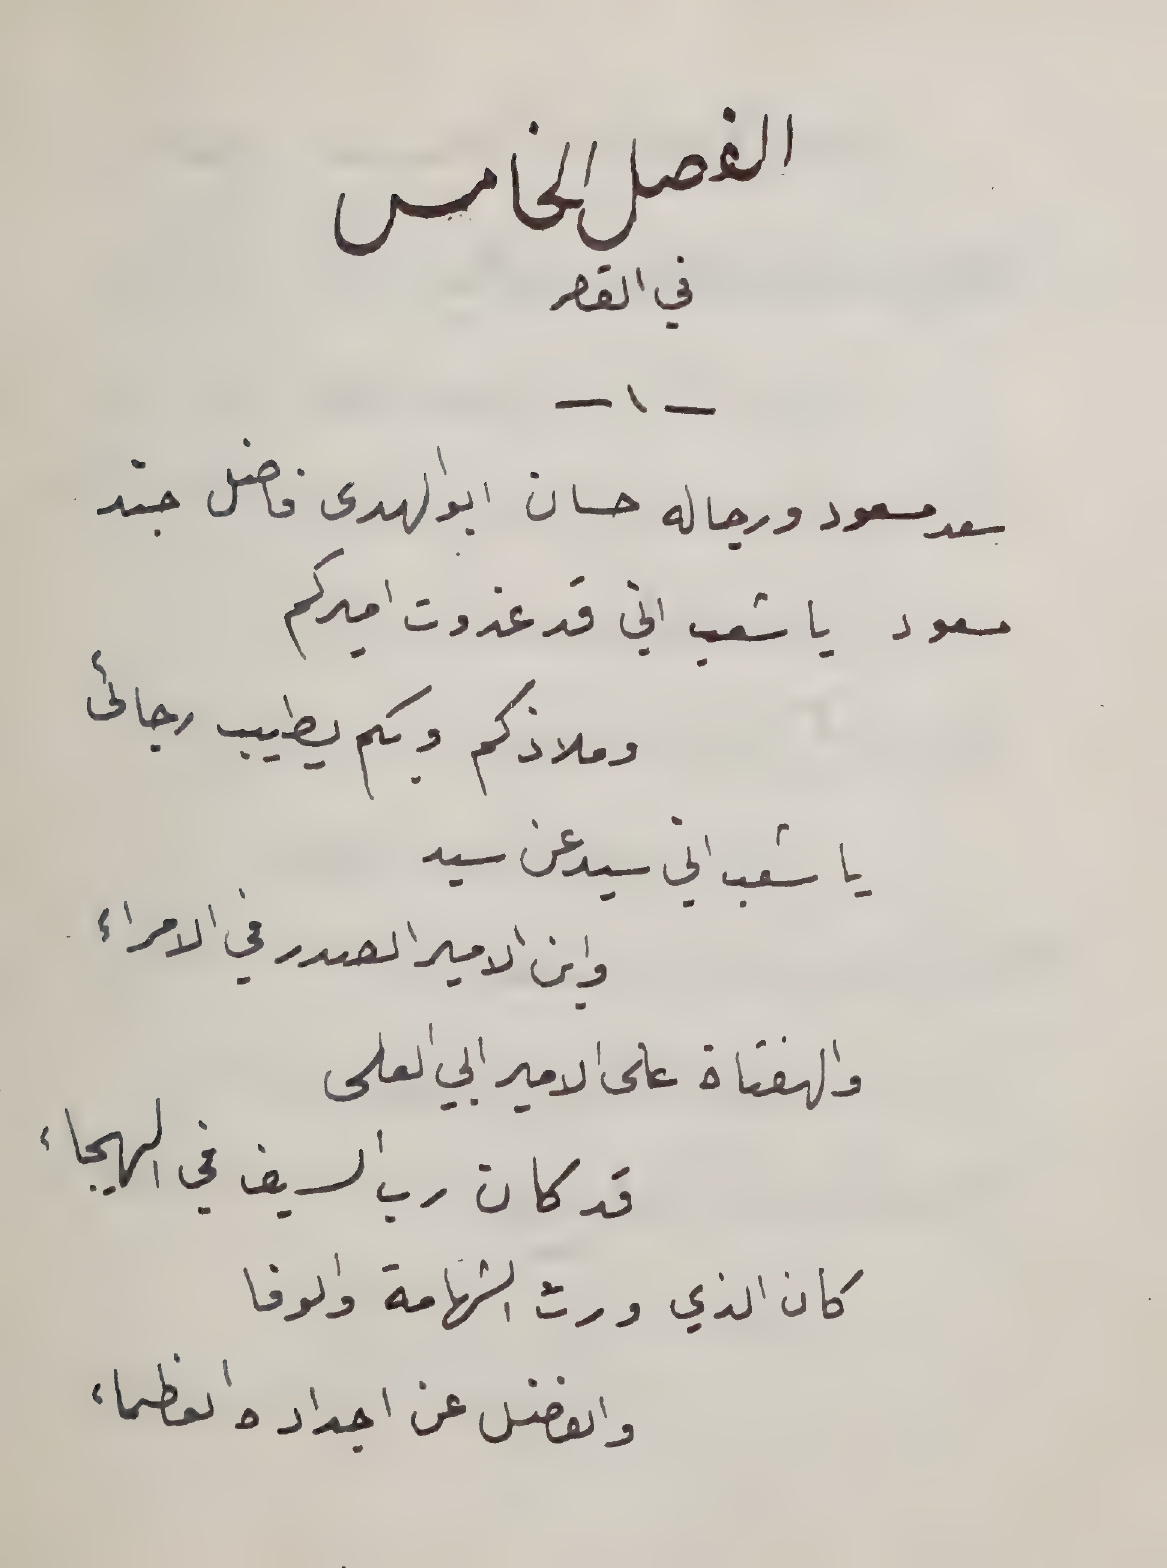 الفصل الخامس
في القصر
— ١ —
سعد مسعود ورجاله حسان ابو الهدى فاضل جند
مسعود يا شعب اني قد غدوت اميركم
وملاذكم وبكم يطيب رجائي
يا شعب اني سيد عن سيد
وابن الامير الصدر في الامراء
والهفتاة على الامير ابي العلى
قد كان رب السيف في الهيجاء
كان الذي ورث الشهامة والوفا
والفضل عن اجداده العظماء